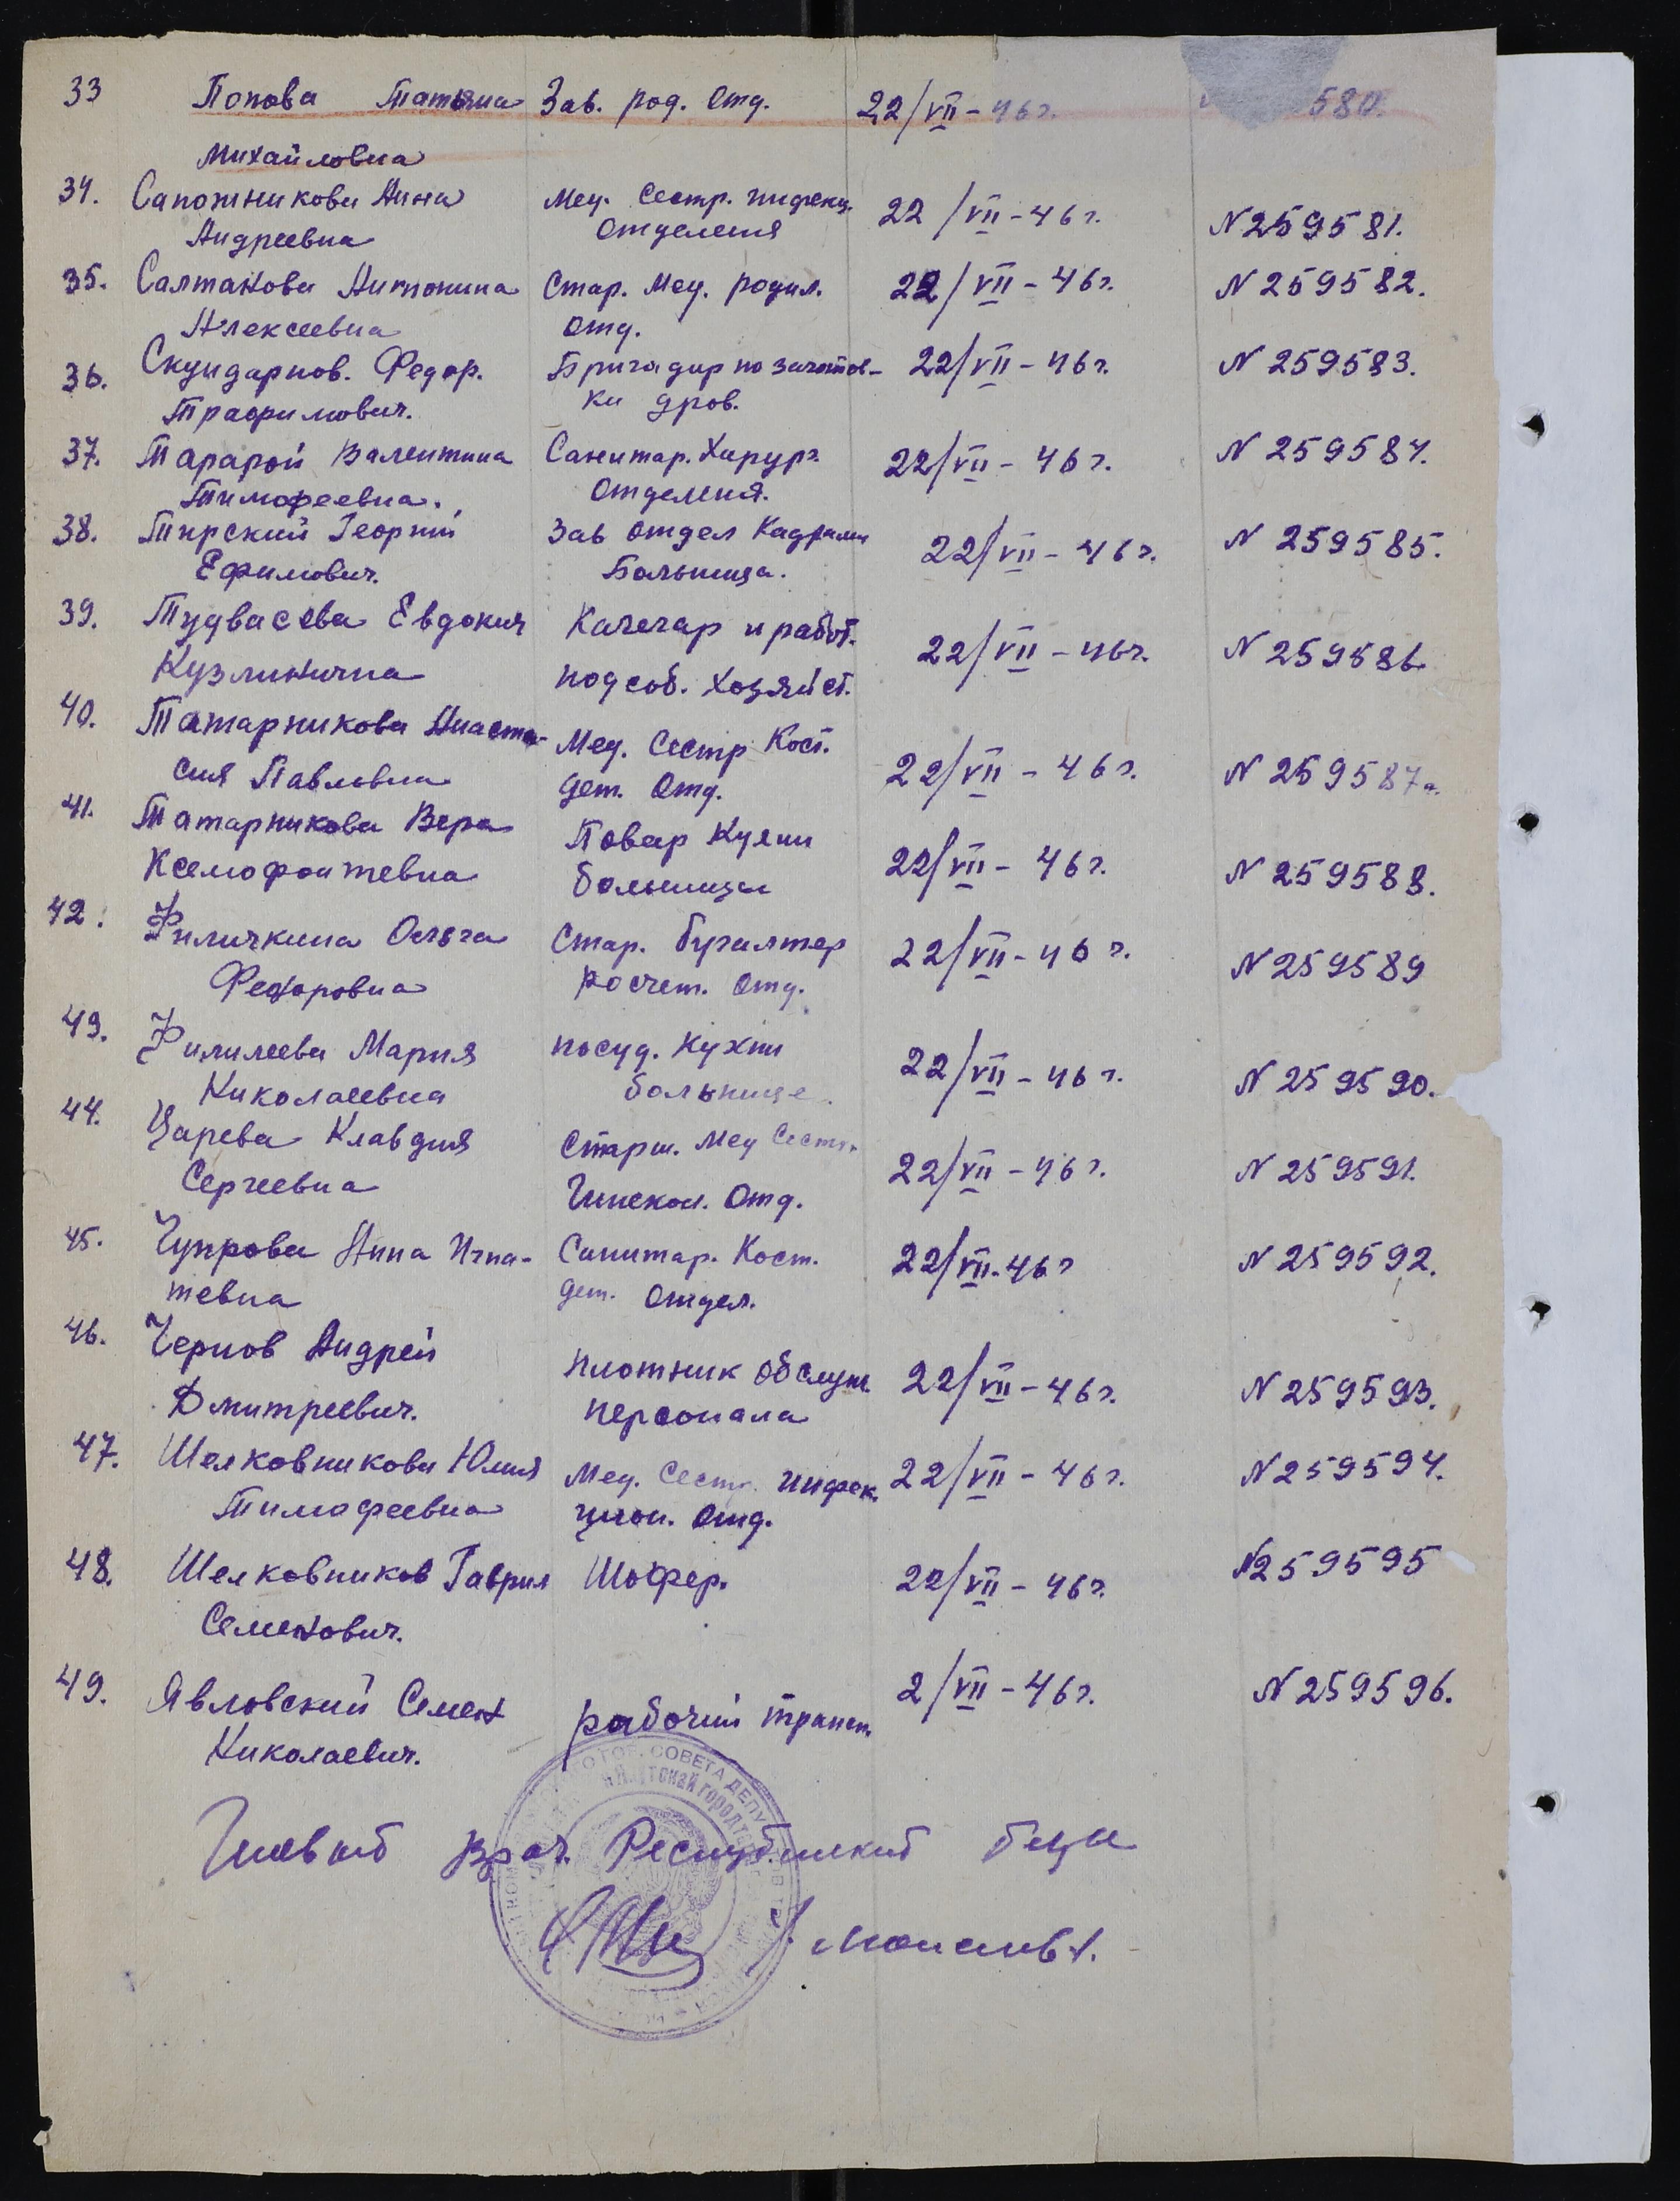 33 Попова Татьяна Зав. род. Отд. 22/VII-46г. 580.
Михайловна
34. Сапожникова Анна Мед. Сестр. инфекц. 22/VII-46г. N 259581.
Андреевна Отделения
35. Салтанова Антонина Стар. Мед. родил. 22/VII-46г. N 259582.
Алексеевна Отд.
36. Скундарнов. Федор. Бригадир по заготов- 22/VII-46г. N 259583.
Трафимович. ки дров.
37. Тарарой Валентина Санитар. Хирург. 22/VII-46г. N 259584.
Тимофеевна. Отделения.
38. Тирский Георгий Зав отдел Кадрами 22/VII-46г. N 259585.
Ефимович. Больница.
39. Тудвасева Евдокия Качегар и работ. 22/VII-46г. N 259586
Кузминична подсоб. Хозяйст.
40. Татарникова Анаста- Мед. Сестр Кост. 22/VII-46г. N 259587
сия Павловна дет. Отд.
41. Татарникова Вера Повар Кухни 22/VII-46г. N 259588.
Ксенофонтевна больницы
42. Филичкина Ольга Стар. бугалтер 22/VII-46г. N 259589
Федоровна росчет. Отд.
43. Филилеева Мария посуд. Кухни 22/VII-46г. N 259590.
Николаевна больнице.
44. Царева Клавдия Старш. Мед Сестр. 22/VII-46г. N 259591.
Сергеевна Гинекол. Отд.
45. Чупрова Анна Игна- Санитар. Кост. 22/VII-46г N 259592.
тевна дет. Отдел.
46. Чернов Андрей плотник обслуж. 22/VII-46г. N 259593.
Дмитреевич. персонала
47. Шелковникова Юлия Мед. Сестр. инфек. 22/VII-46г. N 259594.
Тимофеевна цион. Отд.
48. Шелковников Гаврил Шофер. 22/VII-46г. N 259595
Семенович.
49. Явловский Семен рабочий трансп. 2/VII-46г. N 259596.
Николаевич.
СОВЕТА ДЕПУ
Главный врач. Республиканской б-цы